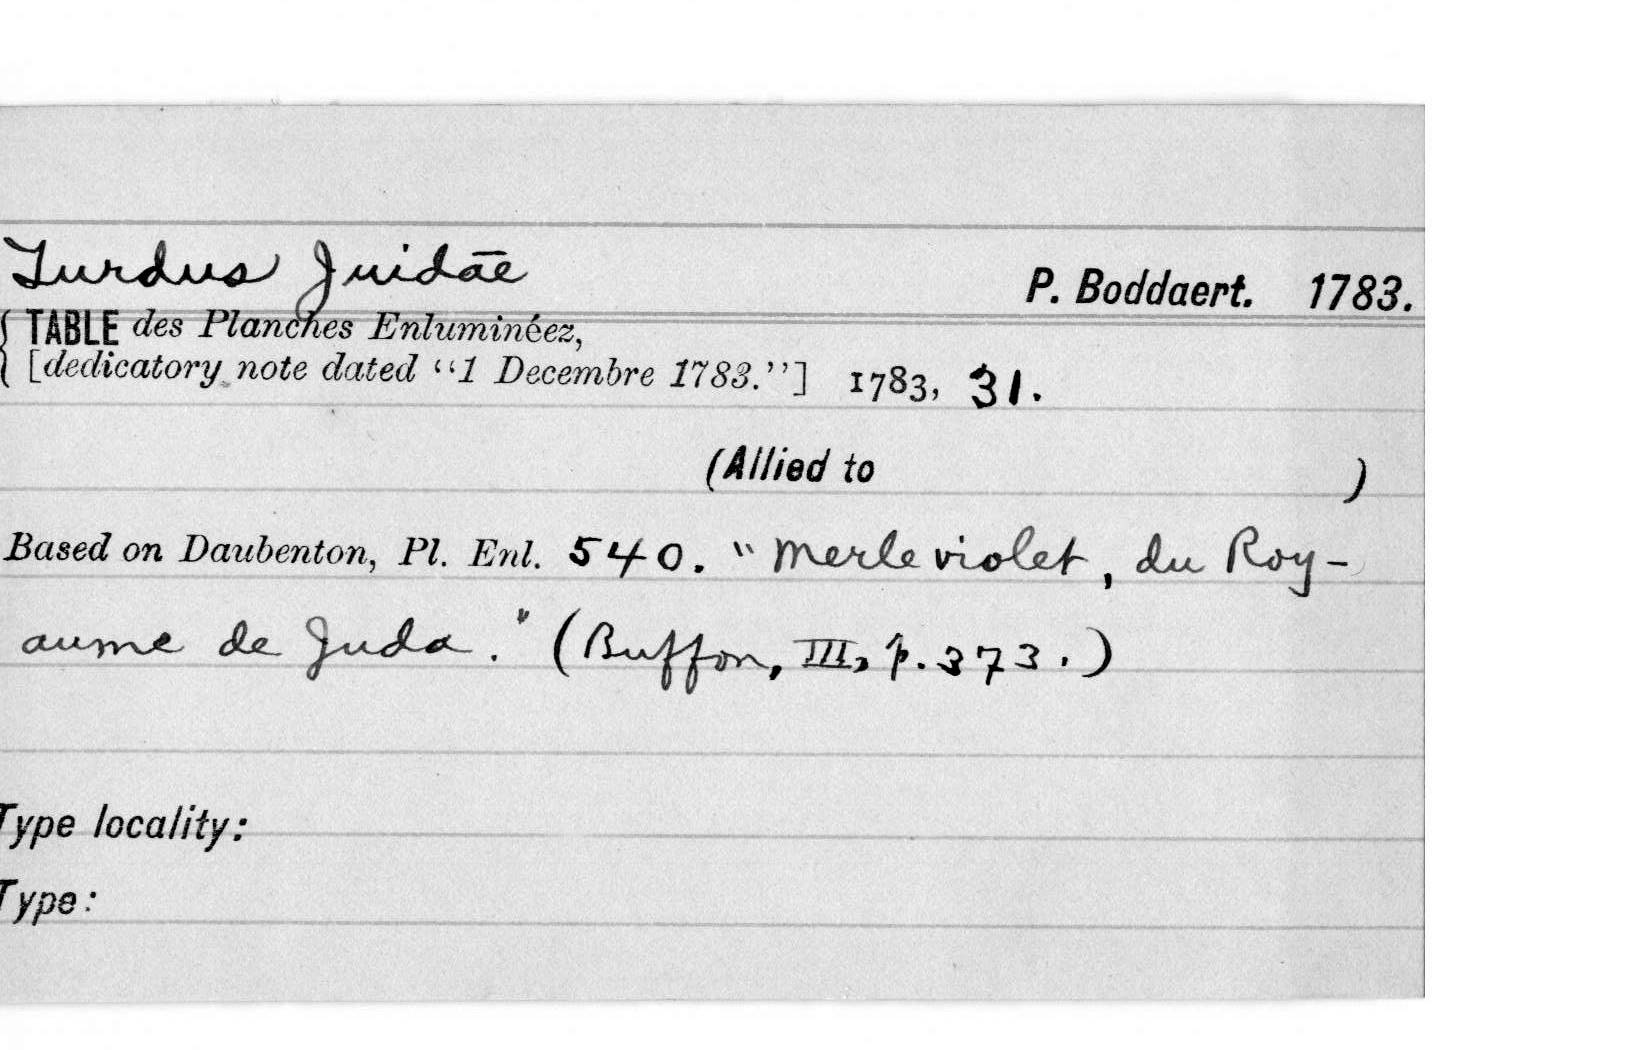 Turdus Juidāe
P. Boddaert. 1783.
{ TABLE des Planches Enluminéez,
[dedicatory note dated “1 Decembre 1783.”] 1783, 31.
(Allied to )
Based on Daubenton, Pl. Enl. 540. "Merle violet, du Roy-
aume de Juda." (Buffon, III, p. 373.)
Type locality:
Type: